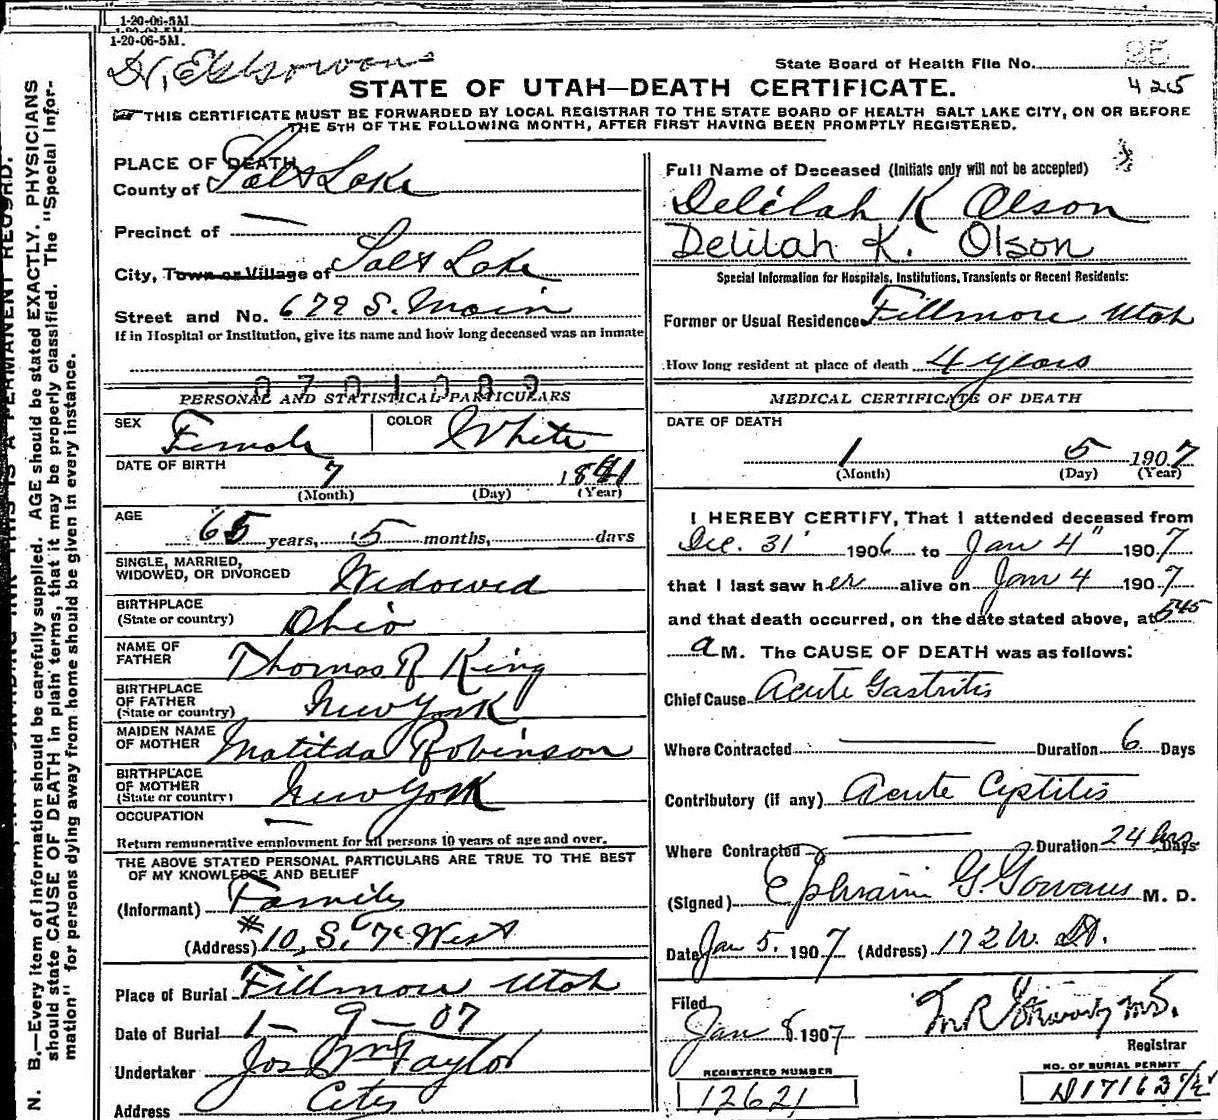 1-20-06-5M.
State Board of Health File No.
425
STATE OF UTAH—DEATH CERTIFICATE.
THIS CERTIFICATE MUST BE FORWARDED BY LOCAL REGISTRAR TO THE STATE BOARD OF HEALTH SALT LAKE CITY, ON OR BEFORE
THE 5TH OF THE FOLLOWING MONTH, AFTER FIRST HAVING BEEN PROMPTLY REGISTERED.
PLACE OF DEATH
County of Salt Lake
Precinct of —
City, Town or Village of Salt Lake
Street and No. 679 S. Main
If in Hospital or Institution, give its name and how long deceased was an inmate
0701089
PERSONAL AND STATISTICAL PARTICULARS
SEX Female COLOR White
DATE OF BIRTH 7 1841
(Month) (Day) (Year)
AGE 65 years, 5 months, days
SINGLE, MARRIED,
WIDOWED, OR DIVORCED Widowed
BIRTHPLACE
(State or country) Ohio
NAME OF
FATHER Thomas R King
BIRTHPLACE
OF FATHER
(State or country) New York
MAIDEN NAME
OF MOTHER Matilda Robinson
BIRTHPLACE
OF MOTHER
(State or country) New York
OCCUPATION —
Return remunerative employment for all persons 10 years of age and over.
THE ABOVE STATED PERSONAL PARTICULARS ARE TRUE TO THE BEST
OF MY KNOWLEDGE AND BELIEF
(Informant) Family
(Address) #10, S. 7th West
Place of Burial Fillmore Utah
Date of Burial 1 — 9 — 07
Undertaker Jos Wm Taylor
Address City
Full Name of Deceased (Initials only will not be accepted)
Delilah K Olson
Delilah K. Olson
Special Information for Hospitals, Institutions, Transients or Recent Residents:
Former or Usual Residence Fillmore Utah
How long resident at place of death 4 years
MEDICAL CERTIFICATE OF DEATH
DATE OF DEATH
1 5 1907
(Month) (Day) (Year)
I HEREBY CERTIFY, That I attended deceased from
Dec. 31 1906 to Jan 4" 1907
that I last saw her alive on Jan 4 1907
and that death occurred, on the date stated above, at 545
a M. The CAUSE OF DEATH was as follows:
Chief Cause Acute Gastritis
Where Contracted — Duration 6 Days
Contributory (if any) Acute Cystitis
Where Contracted — Duration 24 hrs Days
(Signed) Ephraim G. Gowans M. D.
Date Jan 5. 1907 (Address) 172 W. St.
Filed
Jan 8 1907
Registrar
REGISTERED NUMBER
12621
NO. OF BURIAL PERMIT
N. B.—Every item of information should be carefully supplied. AGE should be stated EXACTLY. PHYSICIANS
should state CAUSE OF DEATH in plain terms, that it may be properly classified. The "Special Infor-
mation" for persons dying away from home should be given in every instance.